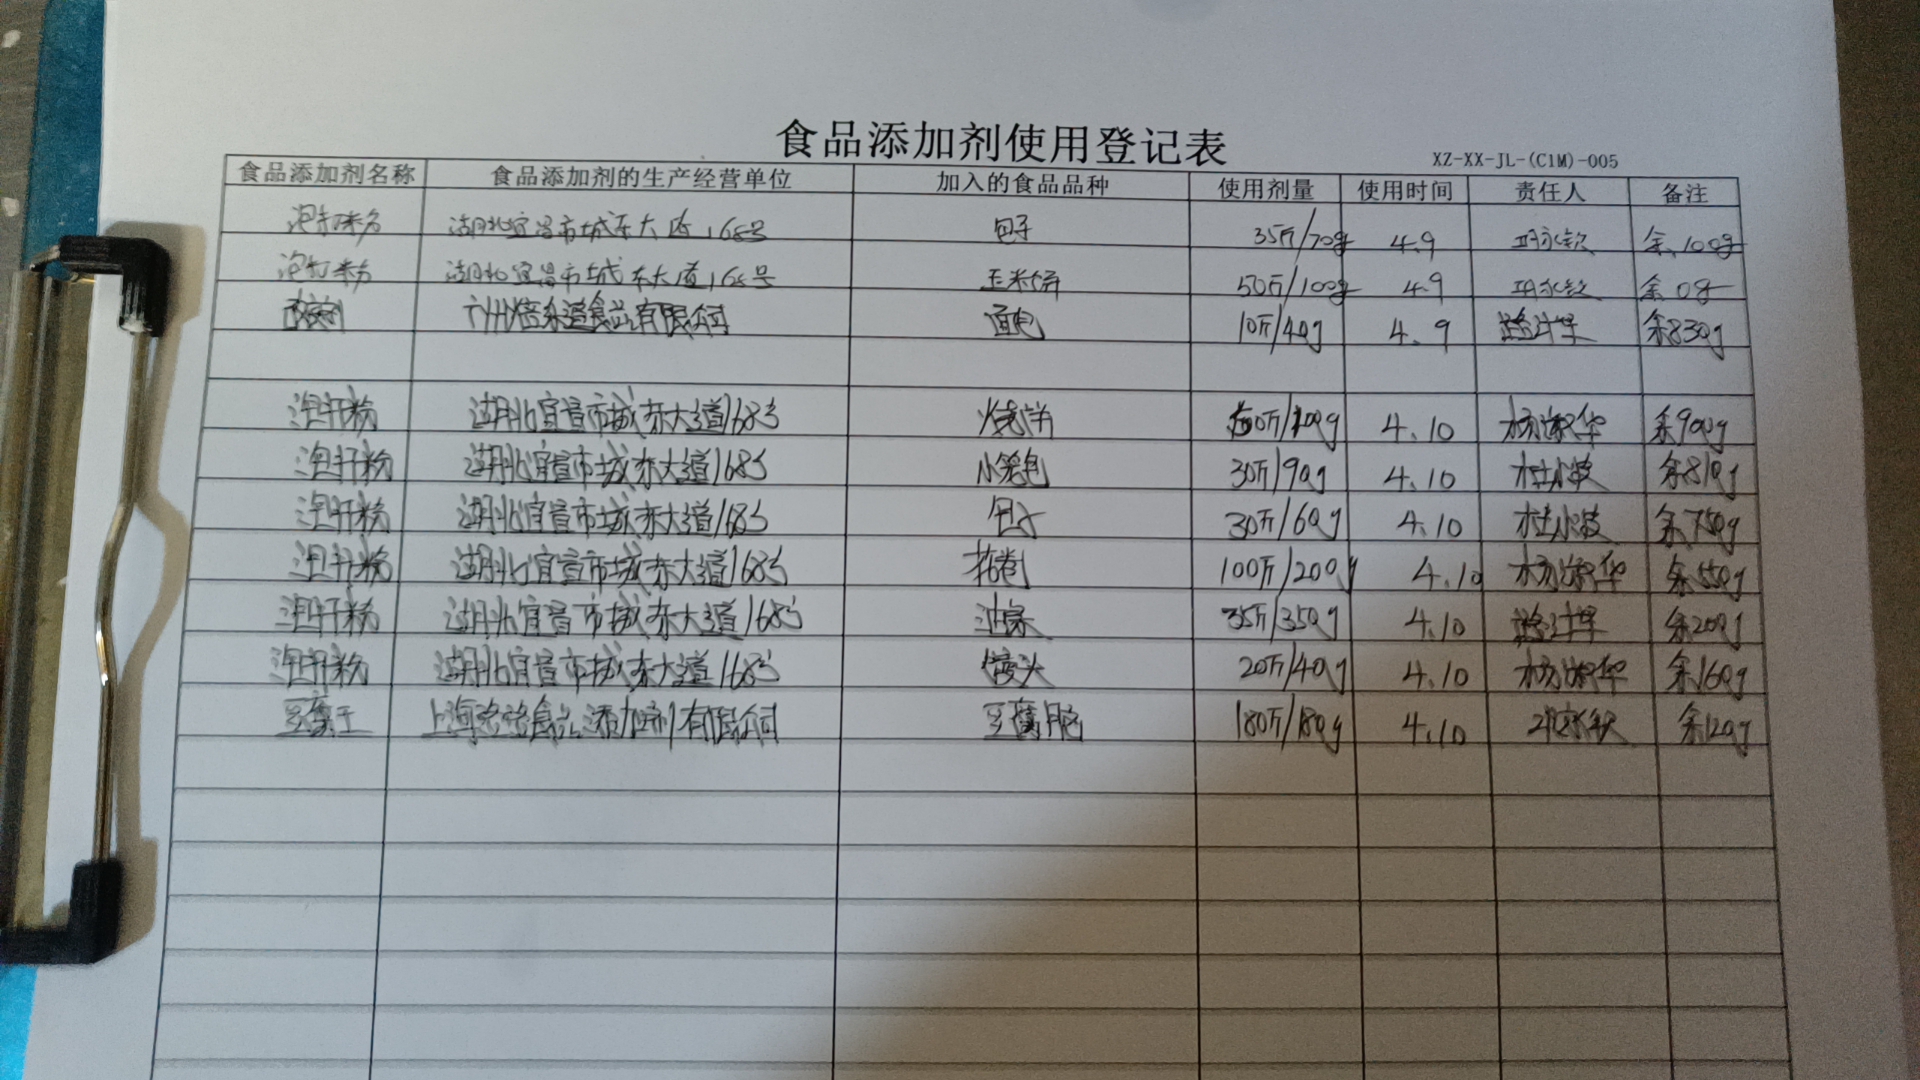 食品添加剂使用登记表
XZ-XX-JL-(C1M)-005
食品添加剂名称 食品添加剂的生产经营单位 加入的食品品种 使用剂量 使用时间 责任人 备注
泡打粉 湖北宜昌市城东大道168号 包子 35斤/70g 4.9 余100g
泡打粉 湖北宜昌市城东大道168号 玉米饼 50斤/100g 4.9 余0g
食品有限公司 面包 10斤/40g 4.9 余830g
泡打粉 湖北宜昌市城东大道168号 烧饼 50斤/100g 4.10 杨淑华 余900g
泡打粉 湖北宜昌市城东大道168号 小笼包 30斤/90g 4.10 杜小波 余810g
泡打粉 湖北宜昌市城东大道168号 包子 30斤/60g 4.10 杜小波 余750g
泡打粉 湖北宜昌市城东大道168号 花卷 100斤/200g 4.10 杨淑华 余550g
泡打粉 湖北宜昌市城东大道168号 油条 35斤/350g 4.10 余200g
泡打粉 湖北宜昌市城东大道168号 馒头 20斤/40g 4.10 杨淑华 余160g
豆腐王 上海 食品添加剂有限公司 豆腐脑 180斤/180g 4.10 余120g